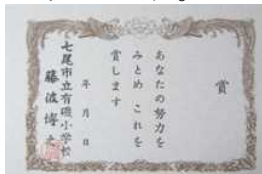 賞
あなたの努力を
みとめ これを
賞します
年 月 日
七尾市立有磯小学校
藤波博